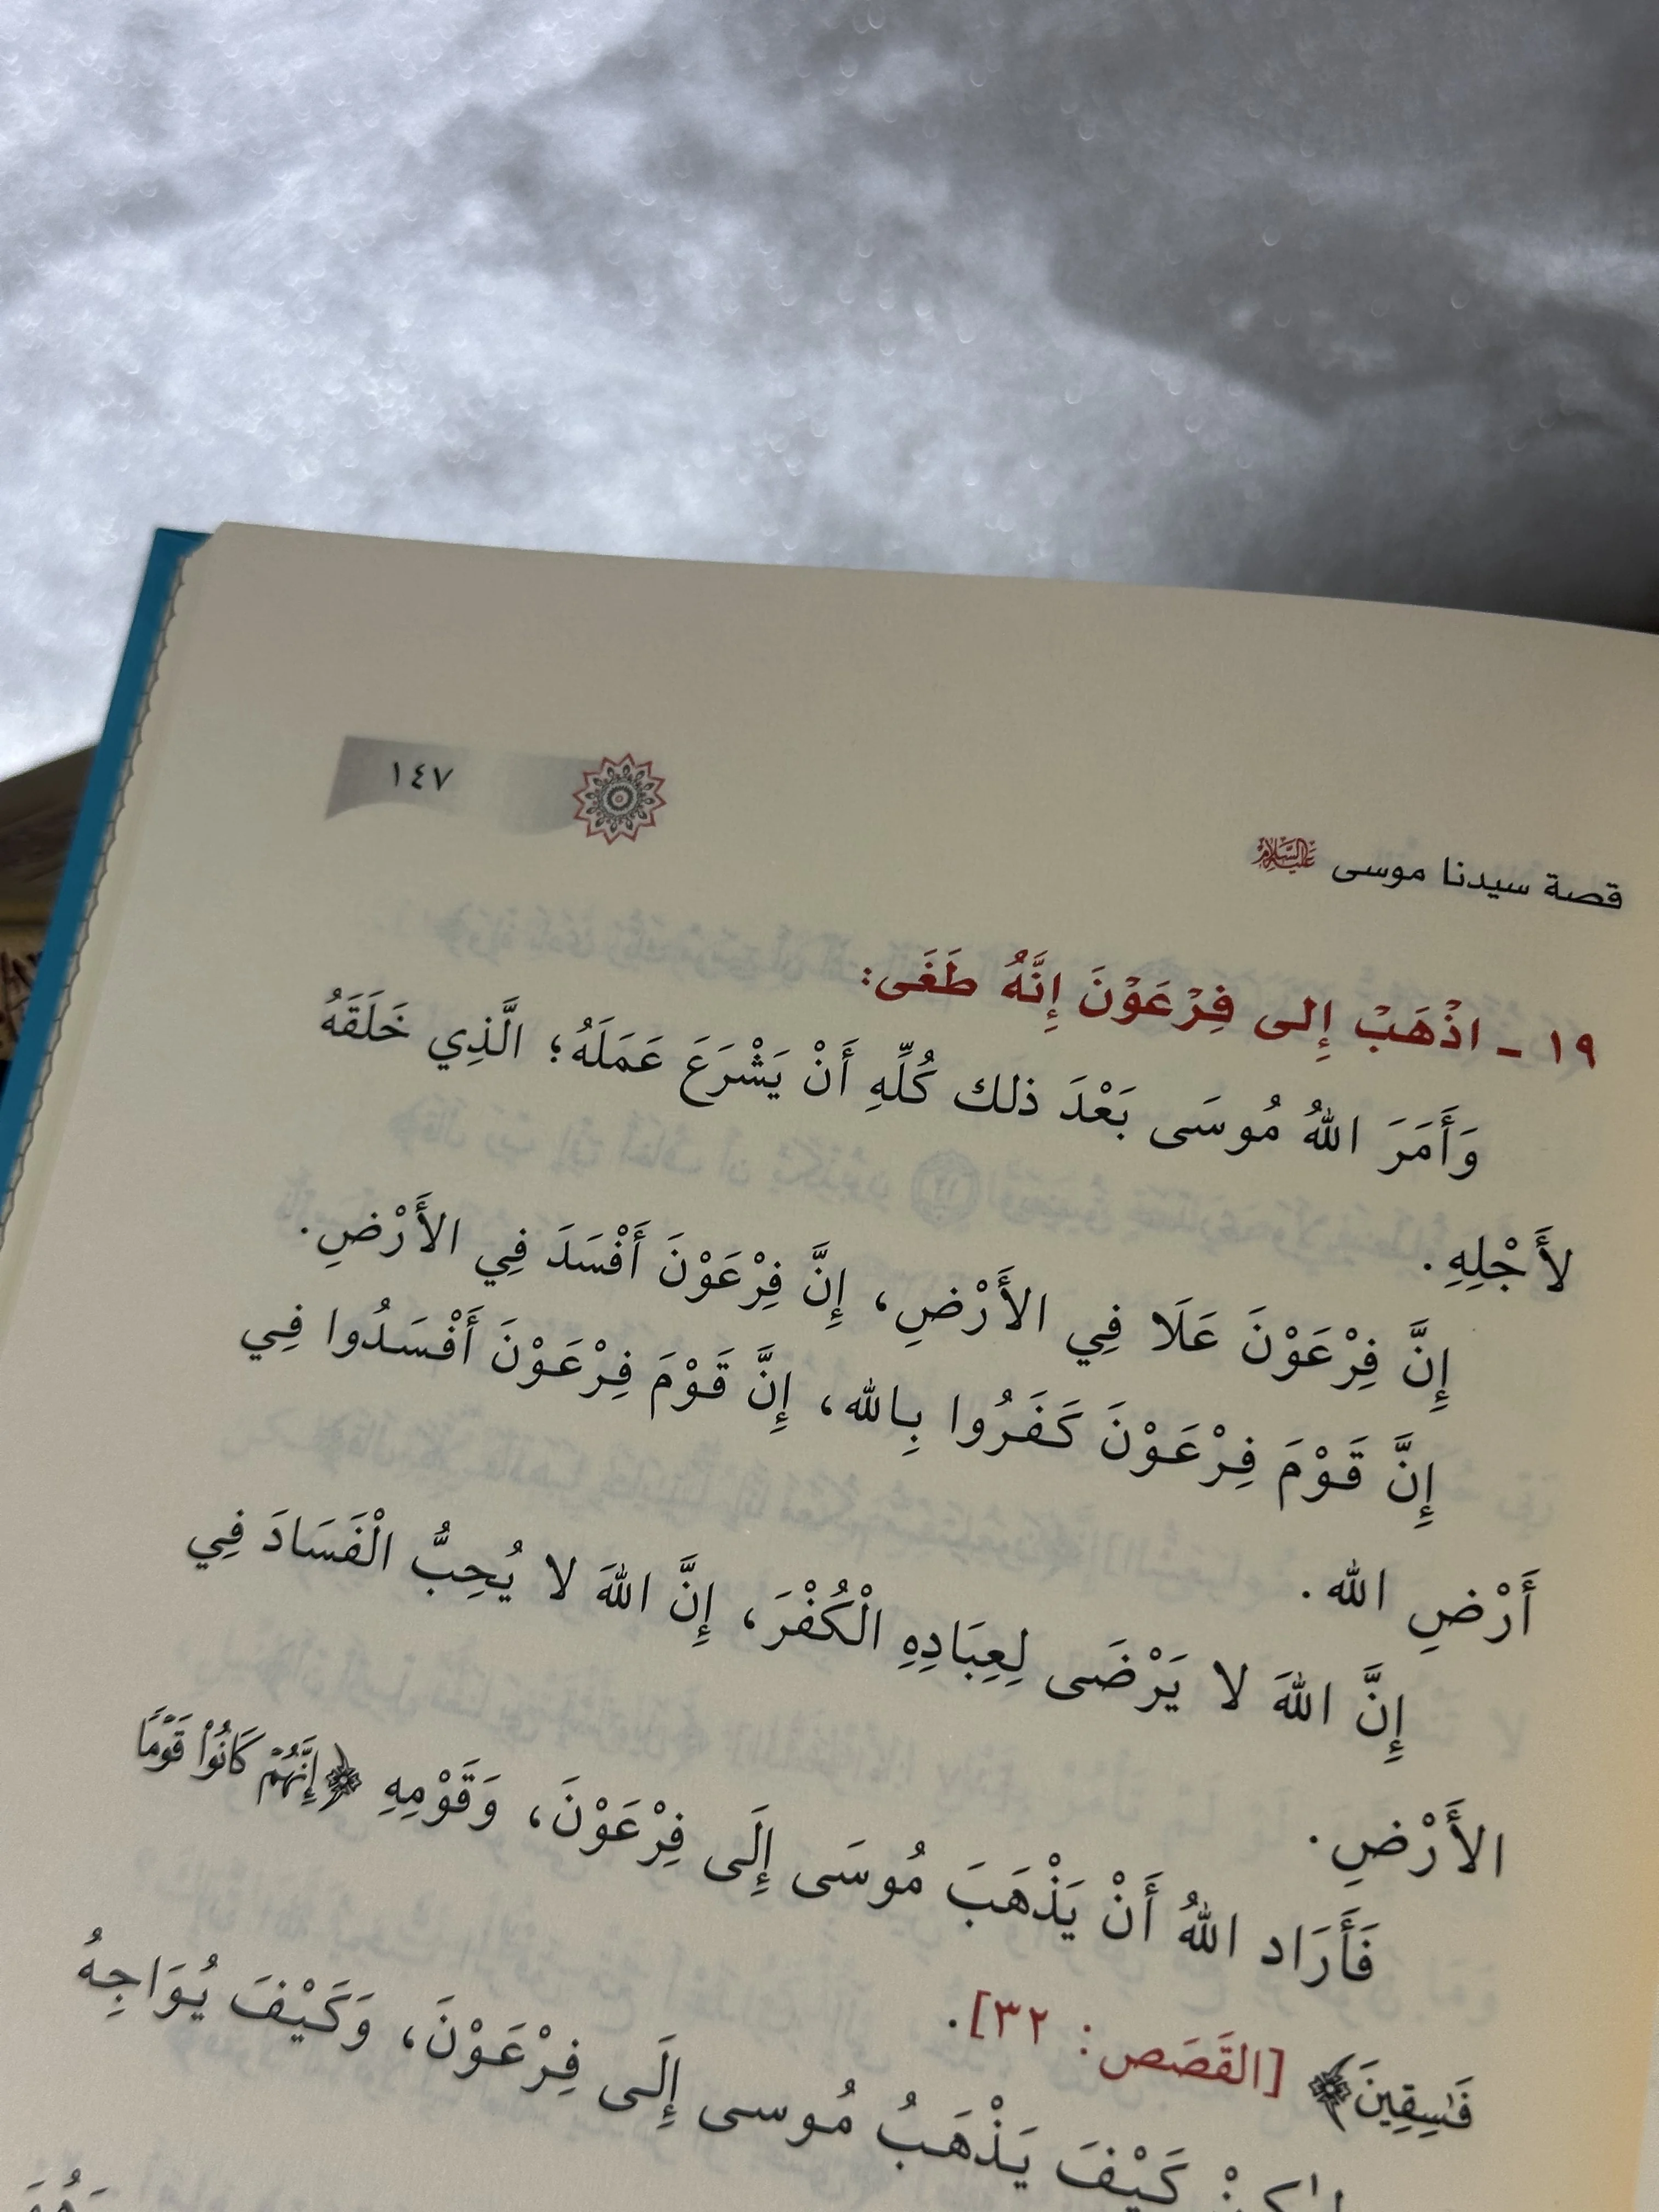 ١٤٧
قصة سيدنا موسى عليه السلام
١٩ ـ اذْهَبْ إِلى فِرْعَوْنَ إِنَّهُ طَغَى:
وَأَمَرَ اللهُ مُوسَى بَعْدَ ذلك كُلِّهِ أَنْ يَشْرَعَ عَمَلَهُ؛ الَّذِي خَلَقَهُ
لأَجْلِهِ.
إِنَّ فِرْعَوْنَ عَلَا فِي الأَرْضِ، إِنَّ فِرْعَوْنَ أَفْسَدَ فِي الأَرْضِ.
إِنَّ قَوْمَ فِرْعَوْنَ كَفَرُوا بِالله، إِنَّ قَوْمَ فِرْعَوْنَ أَفْسَدُوا فِي
أَرْضِ الله.
إِنَّ اللهَ لا يَرْضَى لِعِبَادِهِ الْكُفْرَ، إِنَّ اللهَ لا يُحِبُّ الْفَسَادَ فِي
الأَرْضِ.
فَأَرَاد اللهُ أَنْ يَذْهَبَ مُوسَى إِلَى فِرْعَوْنَ، وَقَوْمِهِ ﴿إِنَّهُمْ كَانُوا۟ قَوْمًا
فَـٰسِقِينَ﴾ [القَصَص: ٣٢].
كَيْفَ يَذْهَبُ مُوسى إِلَى فِرْعَوْنَ، وَكَيْفَ يُوَاجِهُ